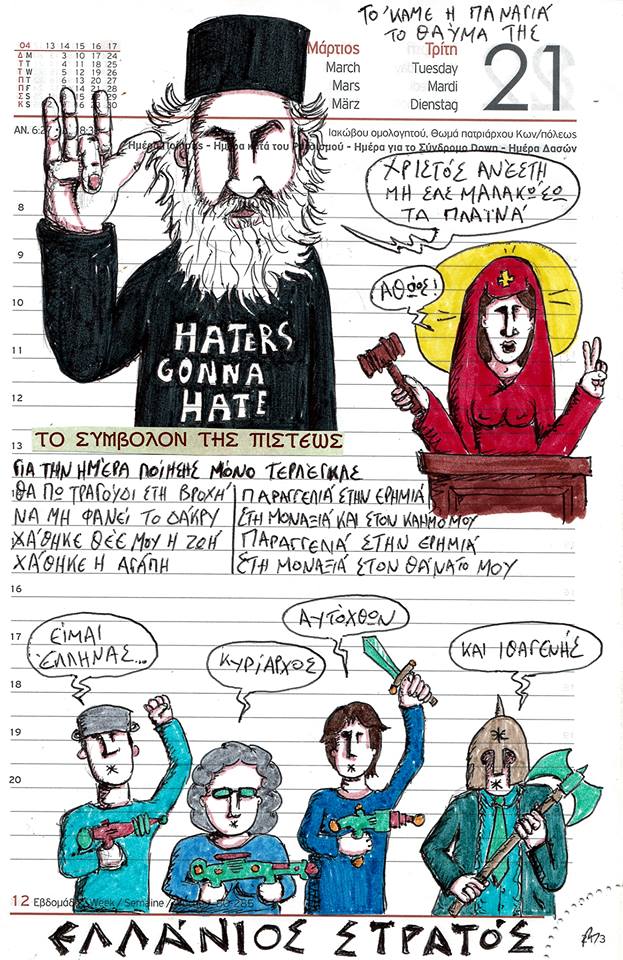 ΤΟ 'ΚΑΜΕ Η ΠΑΝΑΓΙΑ
ΤΟ ΘΑΥΜΑ ΤΗΣ
04 13 14 15 16 17
Δ M 3 10 17 24
Τ T 4 11 18 25
Τ W 5 12 19 26
Π T 6 13 20 27
Π F 7 14 21 28
Σ S 1 8 15 22 29
Κ S 2 9 16 23 30
Μάρτιος
March
Mars
März
Τρίτη
Tuesday
Mardi
Dienstag
21
ΑΝ. 6:27
Ιακώβου ομολογητού, Θωμά πατριάρχου Κων/πόλεως
Ημέρα Ποίησης - Ημέρα κατά του Ρατσισμού - Ημέρα για το Σύνδρομο Down - Ημέρα Δασών
ΧΡΙΣΤΟΣ ΑΝΕΣΤΗ
ΜΗ ΣΑΣ ΜΑΛΑΚΩΣΩ
ΤΑ ΠΛΑΤΙΝΑ
8
9
ΑΘΩΟΣ!
10
HATERS
GONNA
HATE
11
12
13
ΤΟ ΣΥΜΒΟΛΟΝ ΤΗΣ ΠΙΣΤΕΩΣ
ΓΙΑ ΤΗΝ ΗΜΕΡΑ ΠΟΙΗΣΗΣ ΜΟΝΟ ΤΕΡΛΕΓΚΑΣ
ΘΑ ΠΩ ΤΡΑΓΟΥΔΙ ΣΤΗ ΒΡΟΧΗ
ΝΑ ΜΗ ΦΑΝΕΙ ΤΟ ΔΑΚΡΥ
ΧΑΘΗΚΕ ΘΕΕ ΜΟΥ Η ΖΩΗ
ΧΑΘΗΚΕ Η ΑΓΑΠΗ
ΠΑΡΑΓΓΕΛΙΑ ΣΤΗΝ ΕΡΗΜΙΑ
ΣΤΗ ΜΟΝΑΞΙΑ ΚΑΙ ΣΤΟΝ ΚΑΗΜΟ ΜΟΥ
ΠΑΡΑΓΓΕΛΙΑ ΣΤΗΝ ΕΡΗΜΙΑ
ΣΤΗ ΜΟΝΑΞΙΑ ΣΤΟΝ ΘΑΝΑΤΟ ΜΟΥ
15
16
17
ΕΙΜΑΙ
ΕΛΛΗΝΑΣ...
ΚΥΡΙΑΡΧΟΣ
ΑΥΤΟΧΘΩΝ
ΚΑΙ ΙΘΑΓΕΝΗΣ
18
19
20
12 Εβδομάδα / Week / Semaine
ΕΛΛΑΝΙΟΣ ΣΤΡΑΤΟΣ